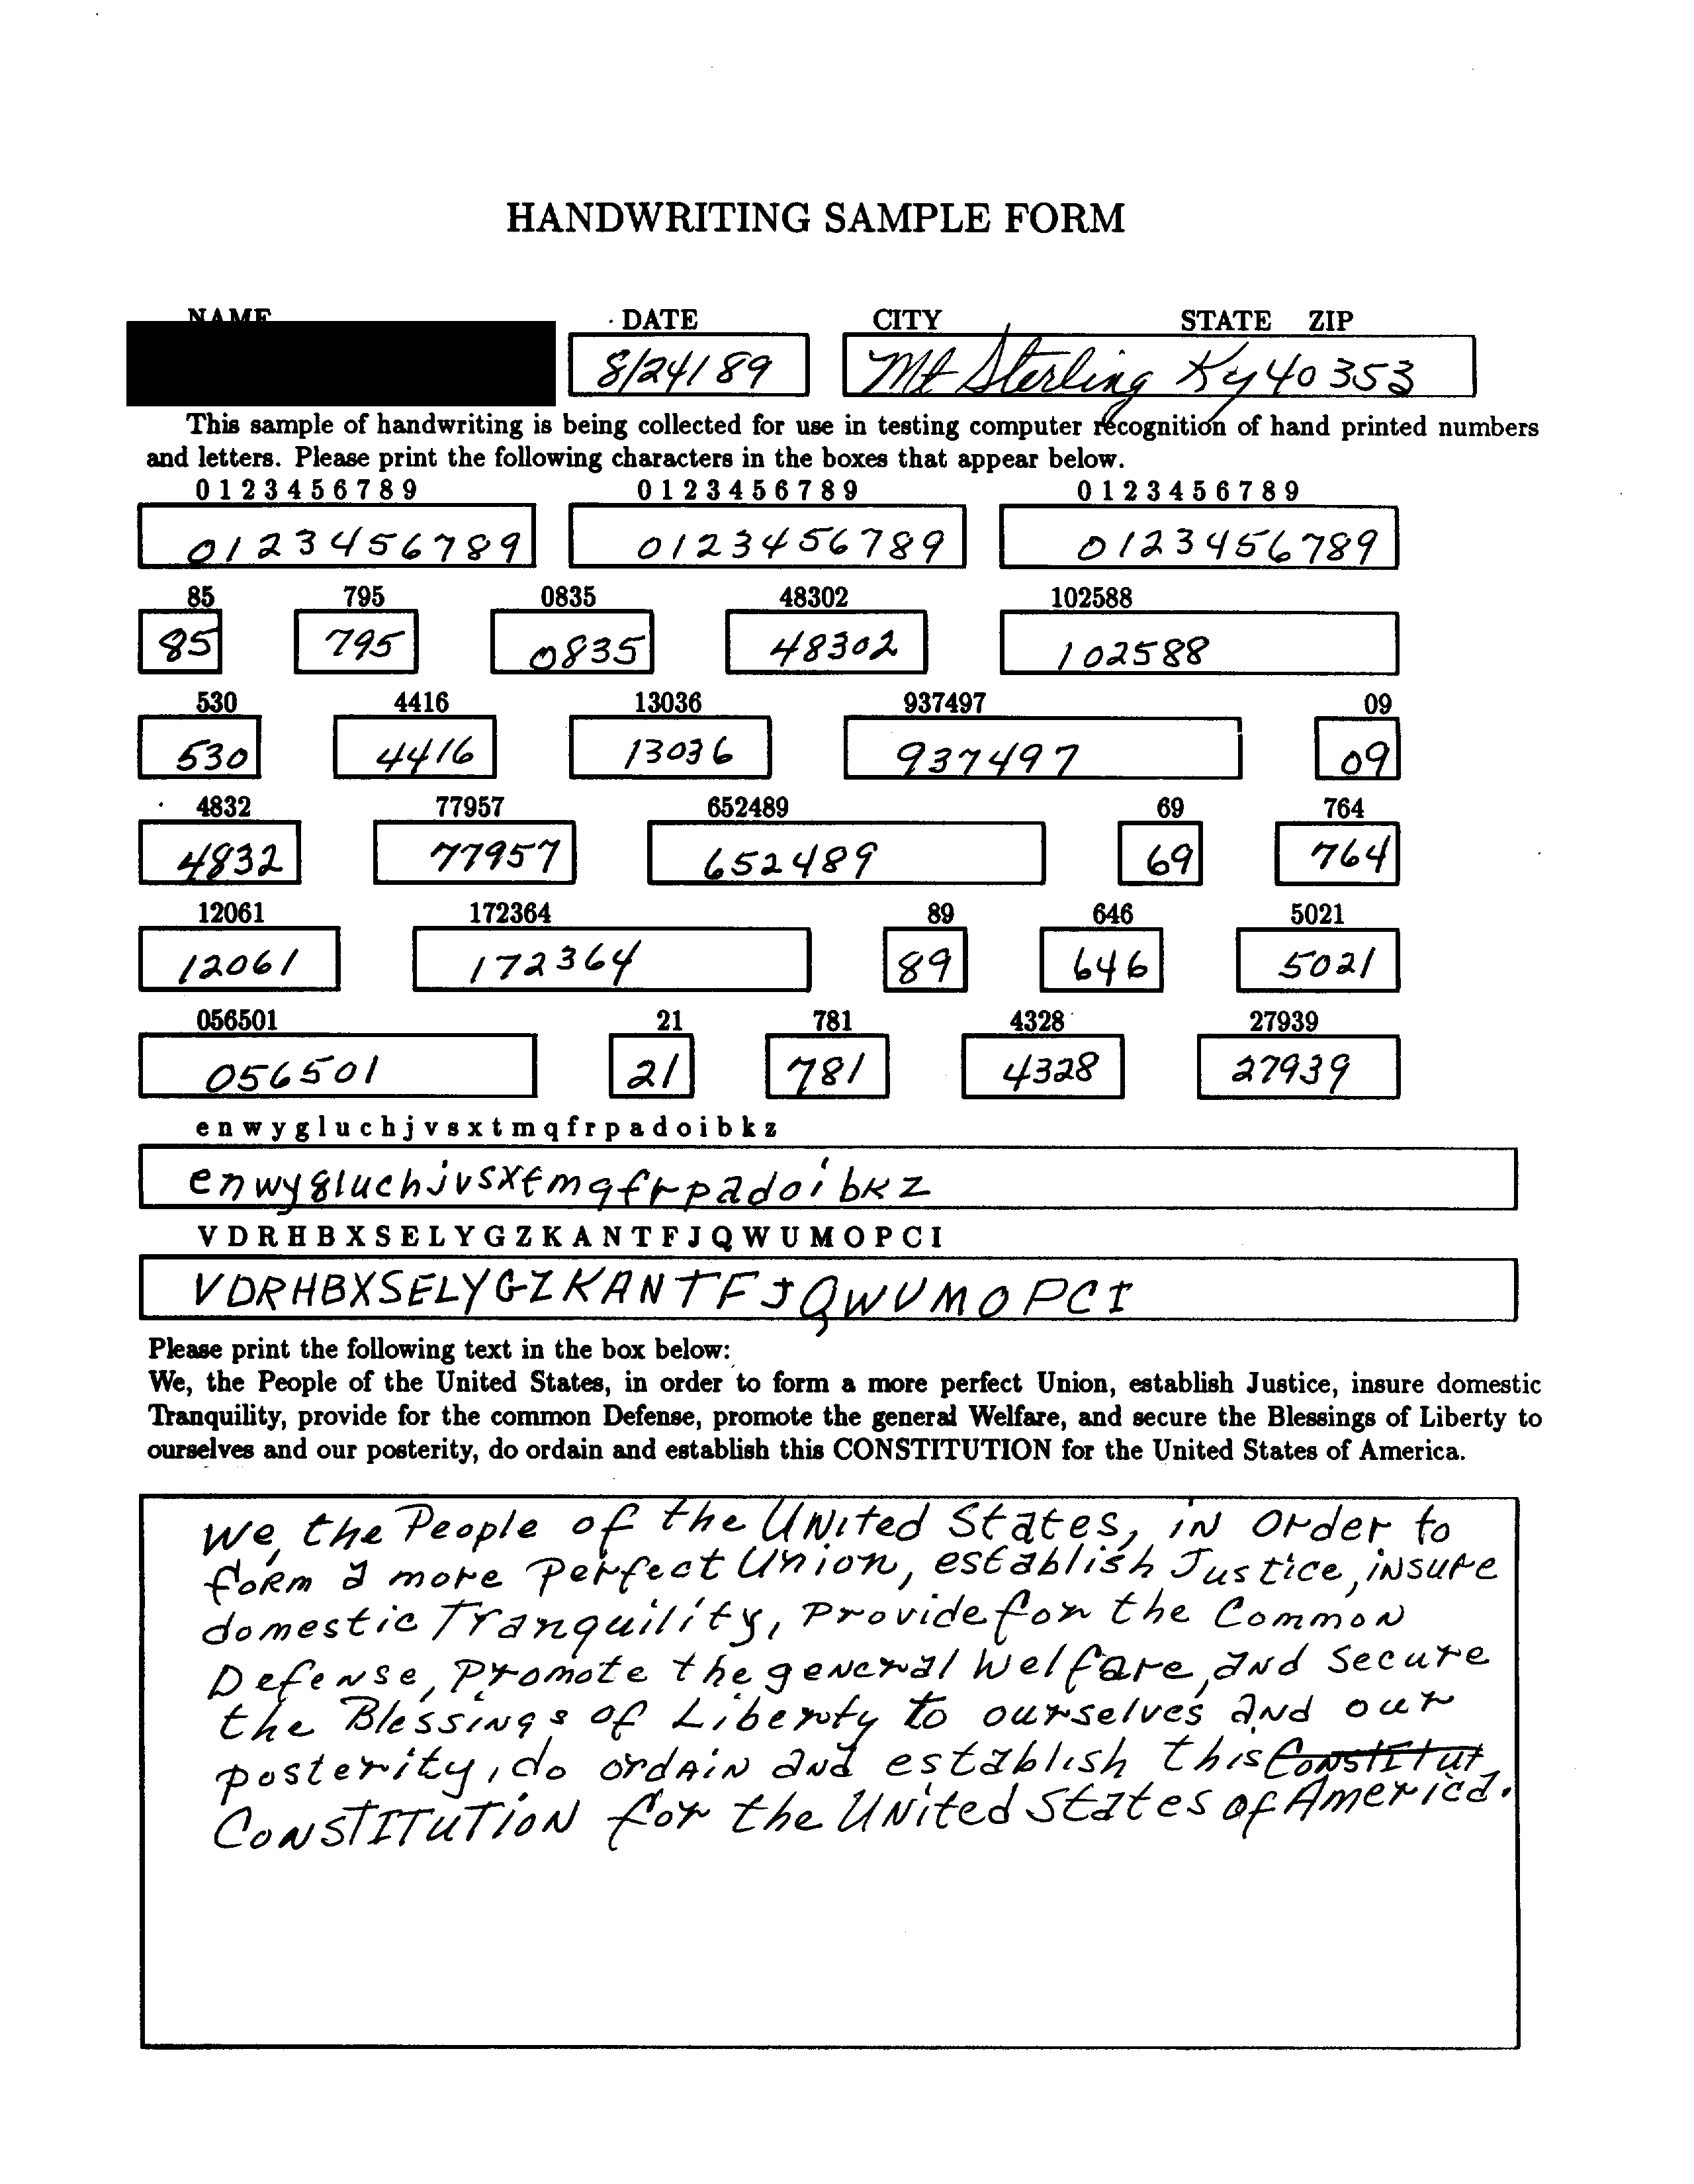 HANDWRITING SAMPLE FORM
NAME DATE CITY STATE ZIP
8/24/89 Mt Sterling Ky 40353
This sample of handwriting is being collected for use in testing computer recognition of hand printed numbers
and letters. Please print the following characters in the boxes that appear below.
0 1 2 3 4 5 6 7 8 9 0 1 2 3 4 5 6 7 8 9 0 1 2 3 4 5 6 7 8 9
0123456789 0123456789 0123456789
85 795 0835 48302 102588
85 795 0835 48302 102588
530 4416 13036 937497 09
530 4416 13036 937497 09
4832 77957 652489 69 764
4832 77957 652489 69 764
12061 172364 89 646 5021
12061 172364 89 646 5021
056501 21 781 4328 27939
056501 21 781 4328 27939
e n w y g l u c h j v s x t m q f r p a d o i b k z
enwygluchjvsxtmqfrpadoibkz
V D R H B X S E L Y G Z K A N T F J Q W U M O P C I
VDRHBXSELYGZKANTFJQWUMOPCI
Please print the following text in the box below:
We, the People of the United States, in order to form a more perfect Union, establish Justice, insure domestic
Tranquility, provide for the common Defense, promote the general Welfare, and secure the Blessings of Liberty to
ourselves and our posterity, do ordain and establish this CONSTITUTION for the United States of America.
We, the People of the UNited States, iN Order to
foRm a more Perfect Union, establish Justice, iNsure
domestic Tranquility, Provide for the CommoN
DefeNse, Promote the geNeral Welfare, aNd Secure
the BlessiNgs of Liberty to ourselves aNd our
posterity, do ordAiN aNd establish this CoNstItut
CoNSTITUTioN for the UNited States of America.